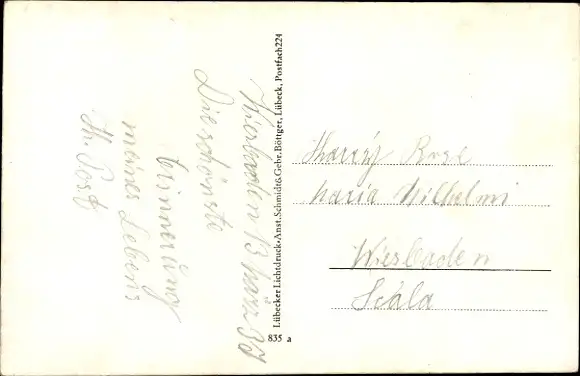 Wiesbaden 13 März 39
Die schönste
Erinnerung
meines Lebens
Th. Post
Lübecker Lichtdruck-Anst. Schmidt & Gebr. Böttger, Lübeck, Postfach 224
835 a
Harry
Maria Wilhelmi
Wiesbaden
Scala